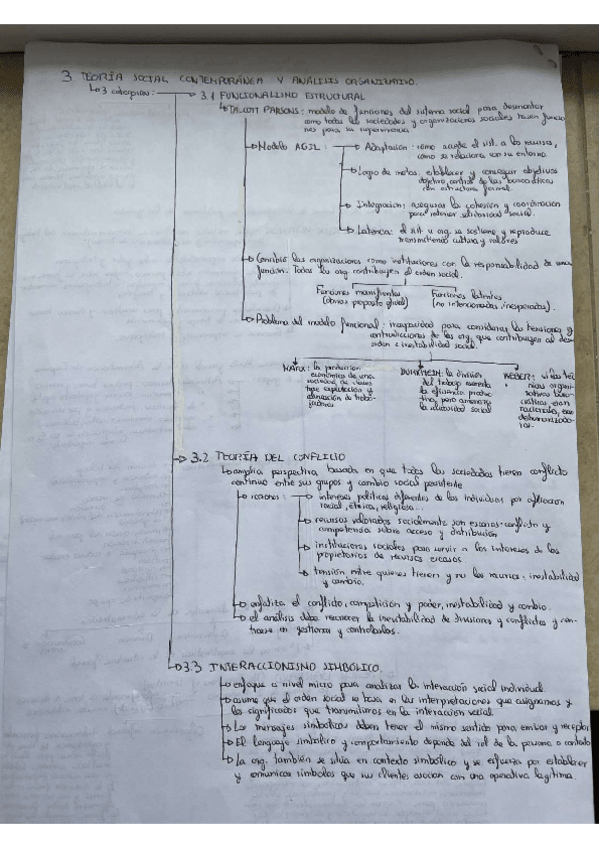 3 TEORÍA SOCIAL CONTEMPORÁNEA Y ANÁLISIS ORGANIZATIVO.
↳3 categorías:
3.1 FUNCIONALISMO ESTRUCTURAL
↳TALCOTT PARSONS: modelo de funciones del sistema social para documentar
como todas las sociedades y organizaciones sociales tienen funcio
nes para su supervivencia
Modelo AGIL:
Adaptación: cómo accede el sist. a los recursos,
cómo se relaciona con su entorno.
Logro de metas: establecer y conseguir objetivos
objetivo, control de las burocráticas
con estructura formal.
Integración: asegurar la cohesión y coordinación
para retener solidaridad social.
Latencia: el sist. u org. se sostiene y reproduce
transmitiendo cultura y valores
las organizaciones como instituciones con la responsabilidad de una
función. Todas las org contribuyen al orden social.
Funciones manifiestas
(obvias, proposito global)
Funciones latentes
(no intencionadas, inesperadas).
Problema del modelo funcional: incapacidad para considerar las tensiones y
contradicciones de las org. que contribuyen al des
orden e inestabilidad social.
MARX: la producción
económica de una
sociedad de clases
trae explotación y
alineación de traba-
jadores
DURKHEIM: la división
del trabajo aumenta
la eficiencia produc
tiva, pero amenaza
la solidaridad social
WEBER:
nicas organi-
zativas buro-
cráticas son
racionales, son
deshumanizado-
ras.
3.2 TEORÍA DEL CONFLICTO
↳amplia perspectiva basada en que todas las sociedades tienen conflicto
continuo entre sus grupos y cambio social persistente
razones:
intereses políticos diferentes de los individuos por afiliación
social, étnica, religiosa...
recursos valorados socialmente son escasos: conflicto y
competencia sobre acceso y distribución
instituciones sociales para servir a los intereses de los
propietarios de recursos escasos.
tensión entre quienes tienen y no los recursos: inestabilidad
y cambio.
enfatiza el conflicto, competición y poder, inestabilidad y cambio.
el análisis debe reconocer la inevitabilidad de divisiones y conflictos y cen-
trarse en gestionar y controlarlos.
3.3 INTERACCIONISMO SIMBÓLICO.
enfoque a nivel micro para analizar la interacción social individual.
asume que el orden social se basa en las interpretaciones que asignamos y
los significados que transmitimos en la interacción social.
Los mensajes simbolicos deben tener el mismo sentido para emisor y receptor
El lenguaje simbólico y comportamiento depende del rol de la persona o contexto
La org. también se sitúa en contexto simbólico y se esfuerza por establecer
y comunicar símbolos que sus clientes asocian con una operativa legítima.